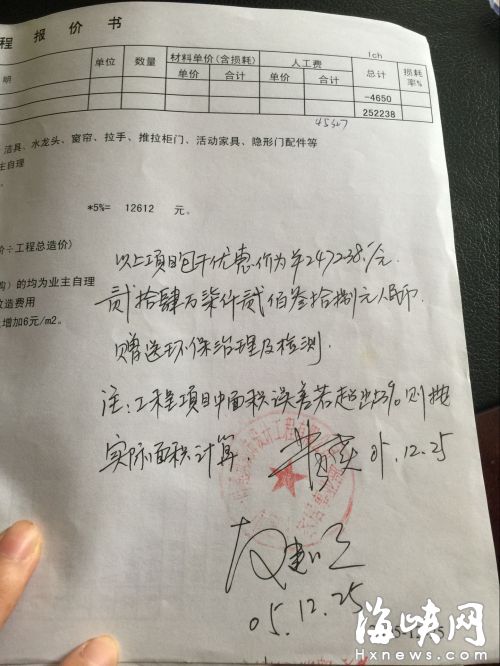 程 报 价 书
lch
明 单位 数量 材料单价(含损耗) 人工费 总计 损耗率%
单价 合计 单价 合计
-4650
252238
洁具、水龙头、窗帘、拉手、推拉柜门、活动家具、隐形门配件等
主自理
*5%= 12612 元。
价÷工程总造价)
购)的均为业主自理
改造费用
增加6元/m2。
以上项目包干优惠价为¥247238.1元.
贰拾肆万柒仟贰佰叁拾捌元人民币.
赠送环保治理及检测.
注:工程项目中面积误差若超出5%则按
实际面积计算.
05.12.25
05.12.25
海峡网
Hxnews.com